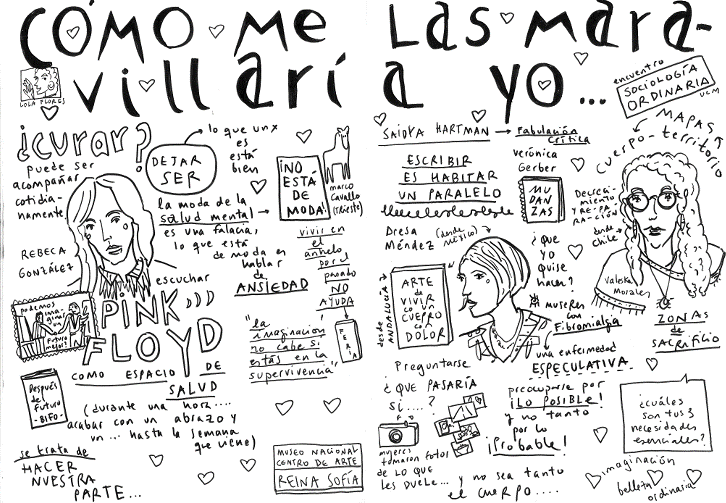 CÓMO ME LAS MARA-
VILLARÍA YO...
LOLA FLORES
encuentro
SOCIOLOGÍA
ORDINARIA
UCM
¿curar?
puede ser
acompañar
cotidia-
namente
REBECA
GONZÁLEZ
DEJAR
SER
lo que unx
es
está
bien
la moda de la
salud mental
es una falacia,
lo que está
de moda es
hablar
de
ANSIEDAD
¡NO
ESTÁ
DE
MODA!
marco
Cavallo
(trieste)
vivir en
el
anhelo
por el
pasado
NO
AYUDA
escuchar
PINK
FLOYD
COMO ESPACIO DE
SALUD
(durante una hora....
acabar con un abrazo y
un... hasta la semana
que viene)
podemos
imaginar
un
futuro
mejor?
Después
del
futuro
-BIFO-
"la
imaginación
no cabe si
estás en la
supervivencia"
FERIA
se trata de
HACER
NUESTRA
PARTE...
MUSEO NACIONAL
CENTRO DE ARTE
REINA SOFÍA
SAIDIYA HARTMAN
Fabulación
Crítica
ESCRIBIR
ES HABITAR
UN PARALELO
verónica
Gerber
MUDANZAS
Dresa
Méndez
(desde
méxico)
desde
ANDALUCÍA
ARTE
DE
VIVIR
CON UN
CUERPO
CON
DOLOR
¿que
yo
quise
hacer?
mujeres
con
Fibromialgia
una enfermedad
ESPECULATIVA.
Preguntarse
¿QUE PASARÍA
SI....?
preocuparse por
¡LO POSIBLE!
y no tanto
por lo
¡Probable!
mujeres
tomaron fotos
DE LO QUE
LES DUELE... y no sea tanto
el cuerpo....
MAPAS
cuerpo-territorio
DECRECI-
MIENTO
REPA-
RACIÓN
desde
Chile
Valeska
Morales
ZONAS
de
SACRIFICIO
¿cuáles
son tus 3
necesidades
esenciales?
imaginación
belleza
ordinaria